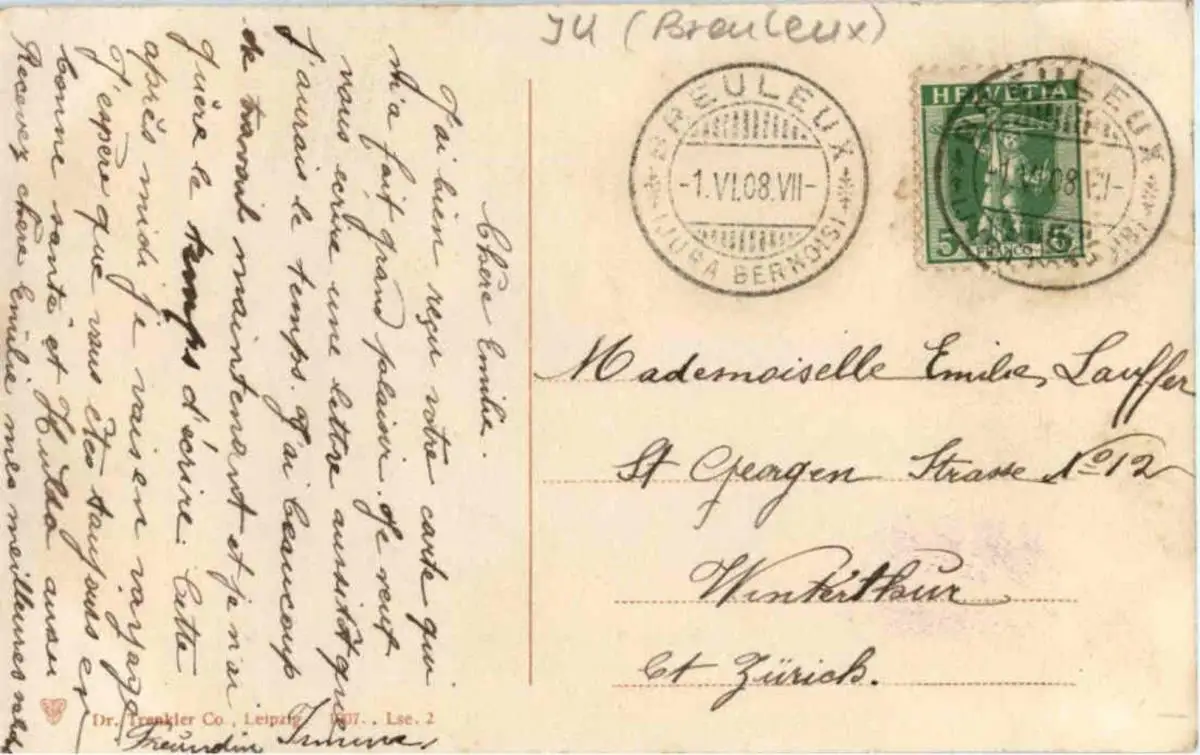 JU (Breuleux)
BREULEUX
-1.VI.08.VII-
(JURA BERNOIS)
HELVETIA
5 FRANCO 5
BREULEUX
Mademoiselle Emilie Lauffer
St Georgen Strasse No 12
Winterthur
Ct Zürich.
Chère Emilie.
J'ai bien reçu votre carte qui
m'a fait grand plaisir. Je veux
vous écrire une lettre aussitôt que
j'aurais le temps. J'ai beaucoup
de travail maintenant et je n'ai
guère le temps d'écrire. Cette
après midi je vais en voyage
J'espère que vous êtes toujours en
bonne santé et Hulda aussi
Recevez chère Emilie mes meilleures
Freundin
Dr. Trenkler Co., Leipzig. 1907. Lse. 2